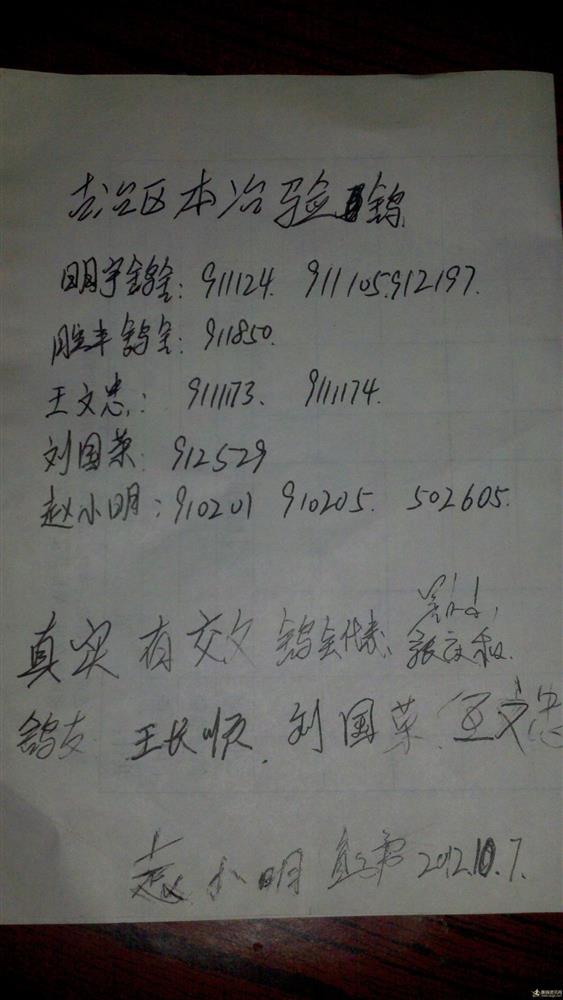 古冶区本冶验鸽
明宇鸽舍: 911124. 911105.912197.
胜丰鸽舍: 911850.
王文忠: 911173. 911174.
刘国荣: 912529
赵小明: 910201 910205. 502605.
真实有效 鸽会代表:
张文和.
鸽友 王长顺. 刘国荣. 王文忠
赵小明 2012.10.7.